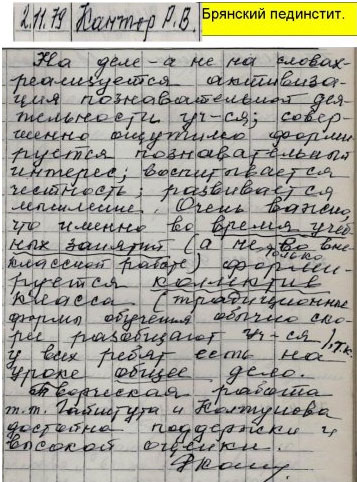 2.11.79 Кантор Р.В. Брянский пединстит.
На деле – а не на словах
реализуется активиза-
ция познавательной дея-
тельности уч-ся; совер-
шенно ощутимо форми
руется познавательный
интерес; воспитывается
честность; развивается
мышление. Очень важно,
что именно во время учеб
ных занятий (а не только во вне
классной работе) форми-
руется коллектив
класса (традиционные
формы обучения обычно ско-
рее разобщают уч-ся), т.к.
у всех ребят есть на
уроке общее дело.
Творческая работа
т.т. Гайштута и Колтунова
достойна поддержки и
высокой оценки.